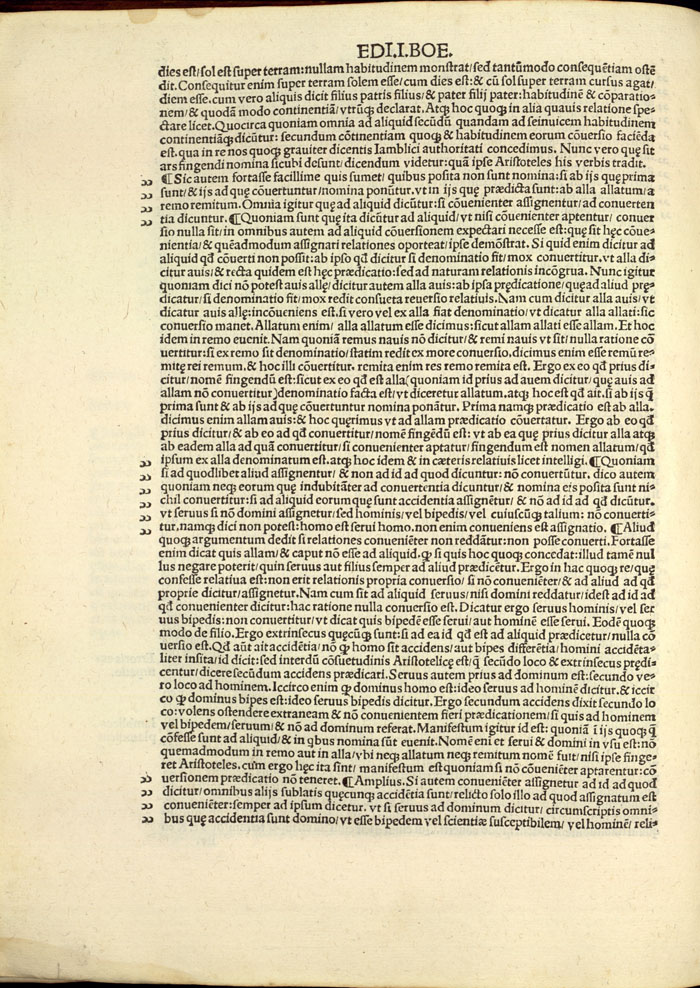 EDI.I.BOE.
dies est/sol est super terram:nullam habitudinem monstrat/sed tantūmodo consequētiam ostē
dit.Consequitur enim super terram solem esse/cum dies est:& cū sol super terram cursus agat/
diem esse.cum vero aliquis dicit filius patris filius/& pater filij pater:habitudinē & cōparatio-
nem/& quodā modo continentiā/vtrūq; declarat.Atq; hoc quoq; in alia quauis relatione spe-
ctare licet.Quocirca quoniam omnia ad aliquid secūdū quandam ad seinuicem habitudinem
continentiāq; dicūtur: secundum cōtinentiam quoq; & habitudinem eorum cōuersio faciēda
est.qua in re nos quoq; grauiter dicentis Iamblici authoritati concedimus. Nunc vero quę sit
ars fingendi nomina sicubi desunt/dicendum videtur:quā ipse Aristoteles his verbis tradit.
¶Sic autem fortasse facillime quis sumet/ quibus posita non sunt nomina:si ab ijs quę prima
sunt/& ijs ad quę cōuertuntur/nomina ponūtur.vt in ijs quę prædicta sunt:ab alla allatum/a
remo remitum.Omnia igitur quę ad aliquid dicūtur:si cōuenienter assignentur/ad conuerten
tia dicuntur. ¶Quoniam sunt quę ita dicūtur ad aliquid/vt nisi cōuenienter aptentur/ conuer
sio nulla sit/in omnibus autem ad aliquid cōuersionem expectari necesse est:quę sit hęc cōue-
nientia/& quēadmodum assignari relationes oporteat/ipse demōstrat. Si quid enim dicitur ad
aliquid qđ cōuerti non possit:ab ipso qđ dicitur si denominatio fit/mox conuertitur.vt alla di-
citur auis/& recta quidem est hęc prædicatio:sed ad naturam relationis incōgrua. Nunc igitur
quoniam dici nō potest auis allę/dicitur autem alla auis:ab ipsa prędicatione/quę ad aliud prę-
dicatur/si denominatio fit/mox redit consueta reuersio relatiuis.Nam cum dicitur alla auis/vt
dicatur auis allę:incōueniens est.si vero vel ex alla fiat denominatio/vt dicatur alla allati:sic
conuersio manet.Allatum enim/ alla allatum esse dicimus:sicut allam allati esse allam. Et hoc
idem in remo euenit.Nam quoniā remus nauis nō dicitur/& remi nauis vt sit/nulla ratione cō
uertitur:si ex remo sit denominatio/statim redit ex more conuersio.dicimus enim esse remū re-
mitę rei remum.& hoc illi cōuertitur. remita enim res remo remita est. Ergo ex eo qđ prius di-
citur/nomē fingendū est:sicut ex eo qđ est alla(quoniam id prius ad auem dicitur/quę auis ad
allam nō conuertitur)denominatio facta est/vt diceretur allatum.atq; hoc est qđ ait.si ab ijs q̄
prima sunt & ab ijs ad quę cōuertuntur nomina ponātur. Prima namq; prædicatio est ab alla.
dicimus enim allam auis:& hoc quęrimus vt ad allam prædicatio cōuertatur. Ergo ab eo qđ
prius dicitur/& ab eo ad qđ conuertitur/nomē fingēdū est: vt ab ea quę prius dicitur alla atq;
ab eadem alla ad quā conuertitur/si conuenienter aptatur/fingendum est nomen allatum/qđ
ipsum ex alla denominatum est.atq; hoc idem & in cæteris relatiuis licet intelligi. ¶Quoniam
si ad quodlibet aliud assignentur/ & non ad id ad quod dicuntur: nō conuertūtur. dico autem
quoniam neq; eorum que indubitāter ad conuertentia dicuntur/& nomina eis posita sunt ni-
chil conuertitur:si ad aliquid eorum quę sunt accidentia assignētur/& nō ad id ad qđ dicūtur.
vt seruus si nō domini assignetur/sed hominis/vel bipedis/vel cuiuscūq; talium: nō conuerti-
tur.namq; dici non potest:homo est serui homo.non enim conueniens est assignatio. ¶Aliud
quoq; argumentum dedit si relationes conueniēter non reddātur:non posse conuerti.Fortasse
enim dicat quis allam/& caput nō esse ad aliquid.ꝙ si quis hoc quoq; concedat:illud tamē nul
lus negare poterit/quin seruus aut filius semper ad aliud prædicētur.Ergo in hac quoq; re/quę
confesse relatiua est:non erit relationis propria conuersio/si nō conueniēter/& ad aliud ad qđ
proprie dicitur/assignetur.Nam cum sit ad aliquid seruus/nisi domini reddatur/idest ad id ad
qđ conuenienter dicitur:hac ratione nulla conuersio est. Dicatur ergo seruus hominis/vel ser
uus bipedis:non conuertitur/vt dicat quis bipedē esse serui/aut hominē esse serui. Eodē quoq;
modo de filio.Ergo extrinsecus quęcūq; sunt:si ad ea id qđ est ad aliquid prædicetur/nulla cō
uersio est.Qđ aūt ait accidētia/nō ꝙ homo sit accidens/aut bipes differētia/homini accidēta-
liter insita/id dicit:sed interdū cōsuetudinis Aristotelicę est/q̄ secūdo loco & extrinsecus prędi-
centur/dicere secūdum accidens prædicari.Seruus autem prius ad dominum est:secundo ve-
ro loco ad hominem.Iccirco enim ꝙ dominus homo est:ideo seruus ad hominē dicitur.& iccir
co ꝙ dominus bipes est:ideo seruus bipedis dicitur. Ergo secundum accidens dixit secundo lo
co:volens ostendere extraneam & nō conuenientem fieri prædicationem/si quis ad hominem
vel bipedem/seruum/& nō ad dominum referat. Manifestum igitur id est: quoniā ī ijs quoq; q̄
cōfesse sunt ad aliquid/& in qbus nomina sūt euenit.Nomē enī et serui & domini in vsu est:nō
quemadmodum in remo aut in alla/vbi neq; allatum neq; remitum nomē fuit/nisi ipse finge-
ret Aristoteles.cum ergo hęc ita sint/ manifestum est quoniam si nō cōueniēter aptarentur:cō
uersionem prædicatio nō teneret. ¶Amplius. Si autem conueniēter assignetur ad id ad quod
dicitur/omnibus alijs sublatis quęcunq; accidētia sunt/relicto solo illo ad quod assignatum est
conueniēter:semper ad ipsum dicetur. vt si seruus ad dominum dicitur/ circumscriptis omni-
bus quę accidentia sunt domino/vt esse bipedem vel scientiæ susceptibilem/ vel hominē/ reli-